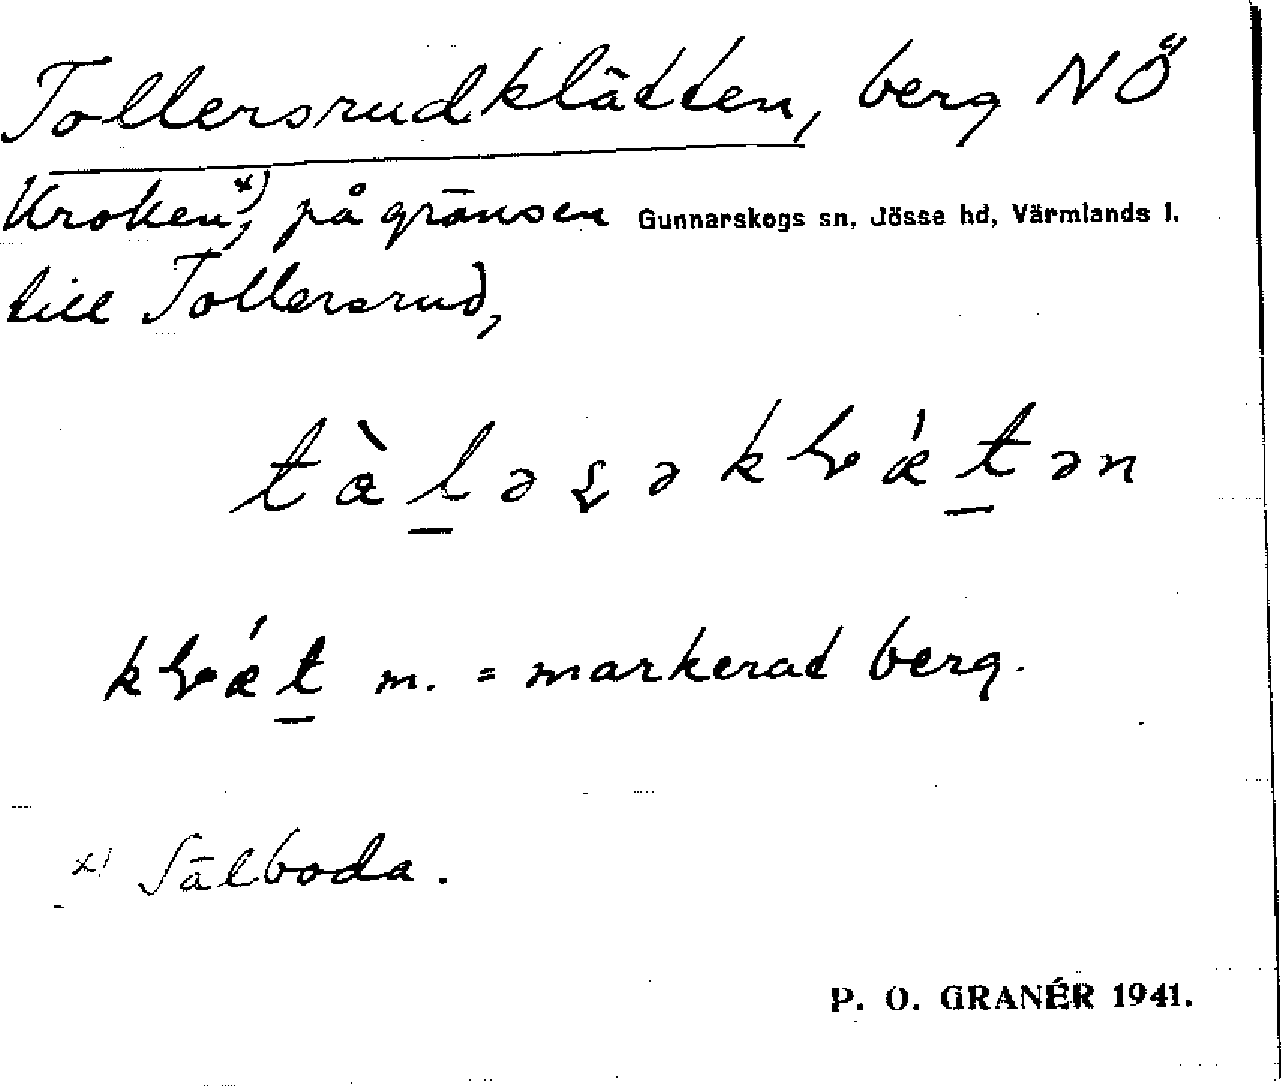 Tollersrudklätten, berg NÖ
Kroken x), på gränsen Gunnarskogs sn, Jösse hd, Värmlands l.
till Tollersrud,
m. = markerad berg.
x) Sälboda.
P. O. GRANÉR 1941.